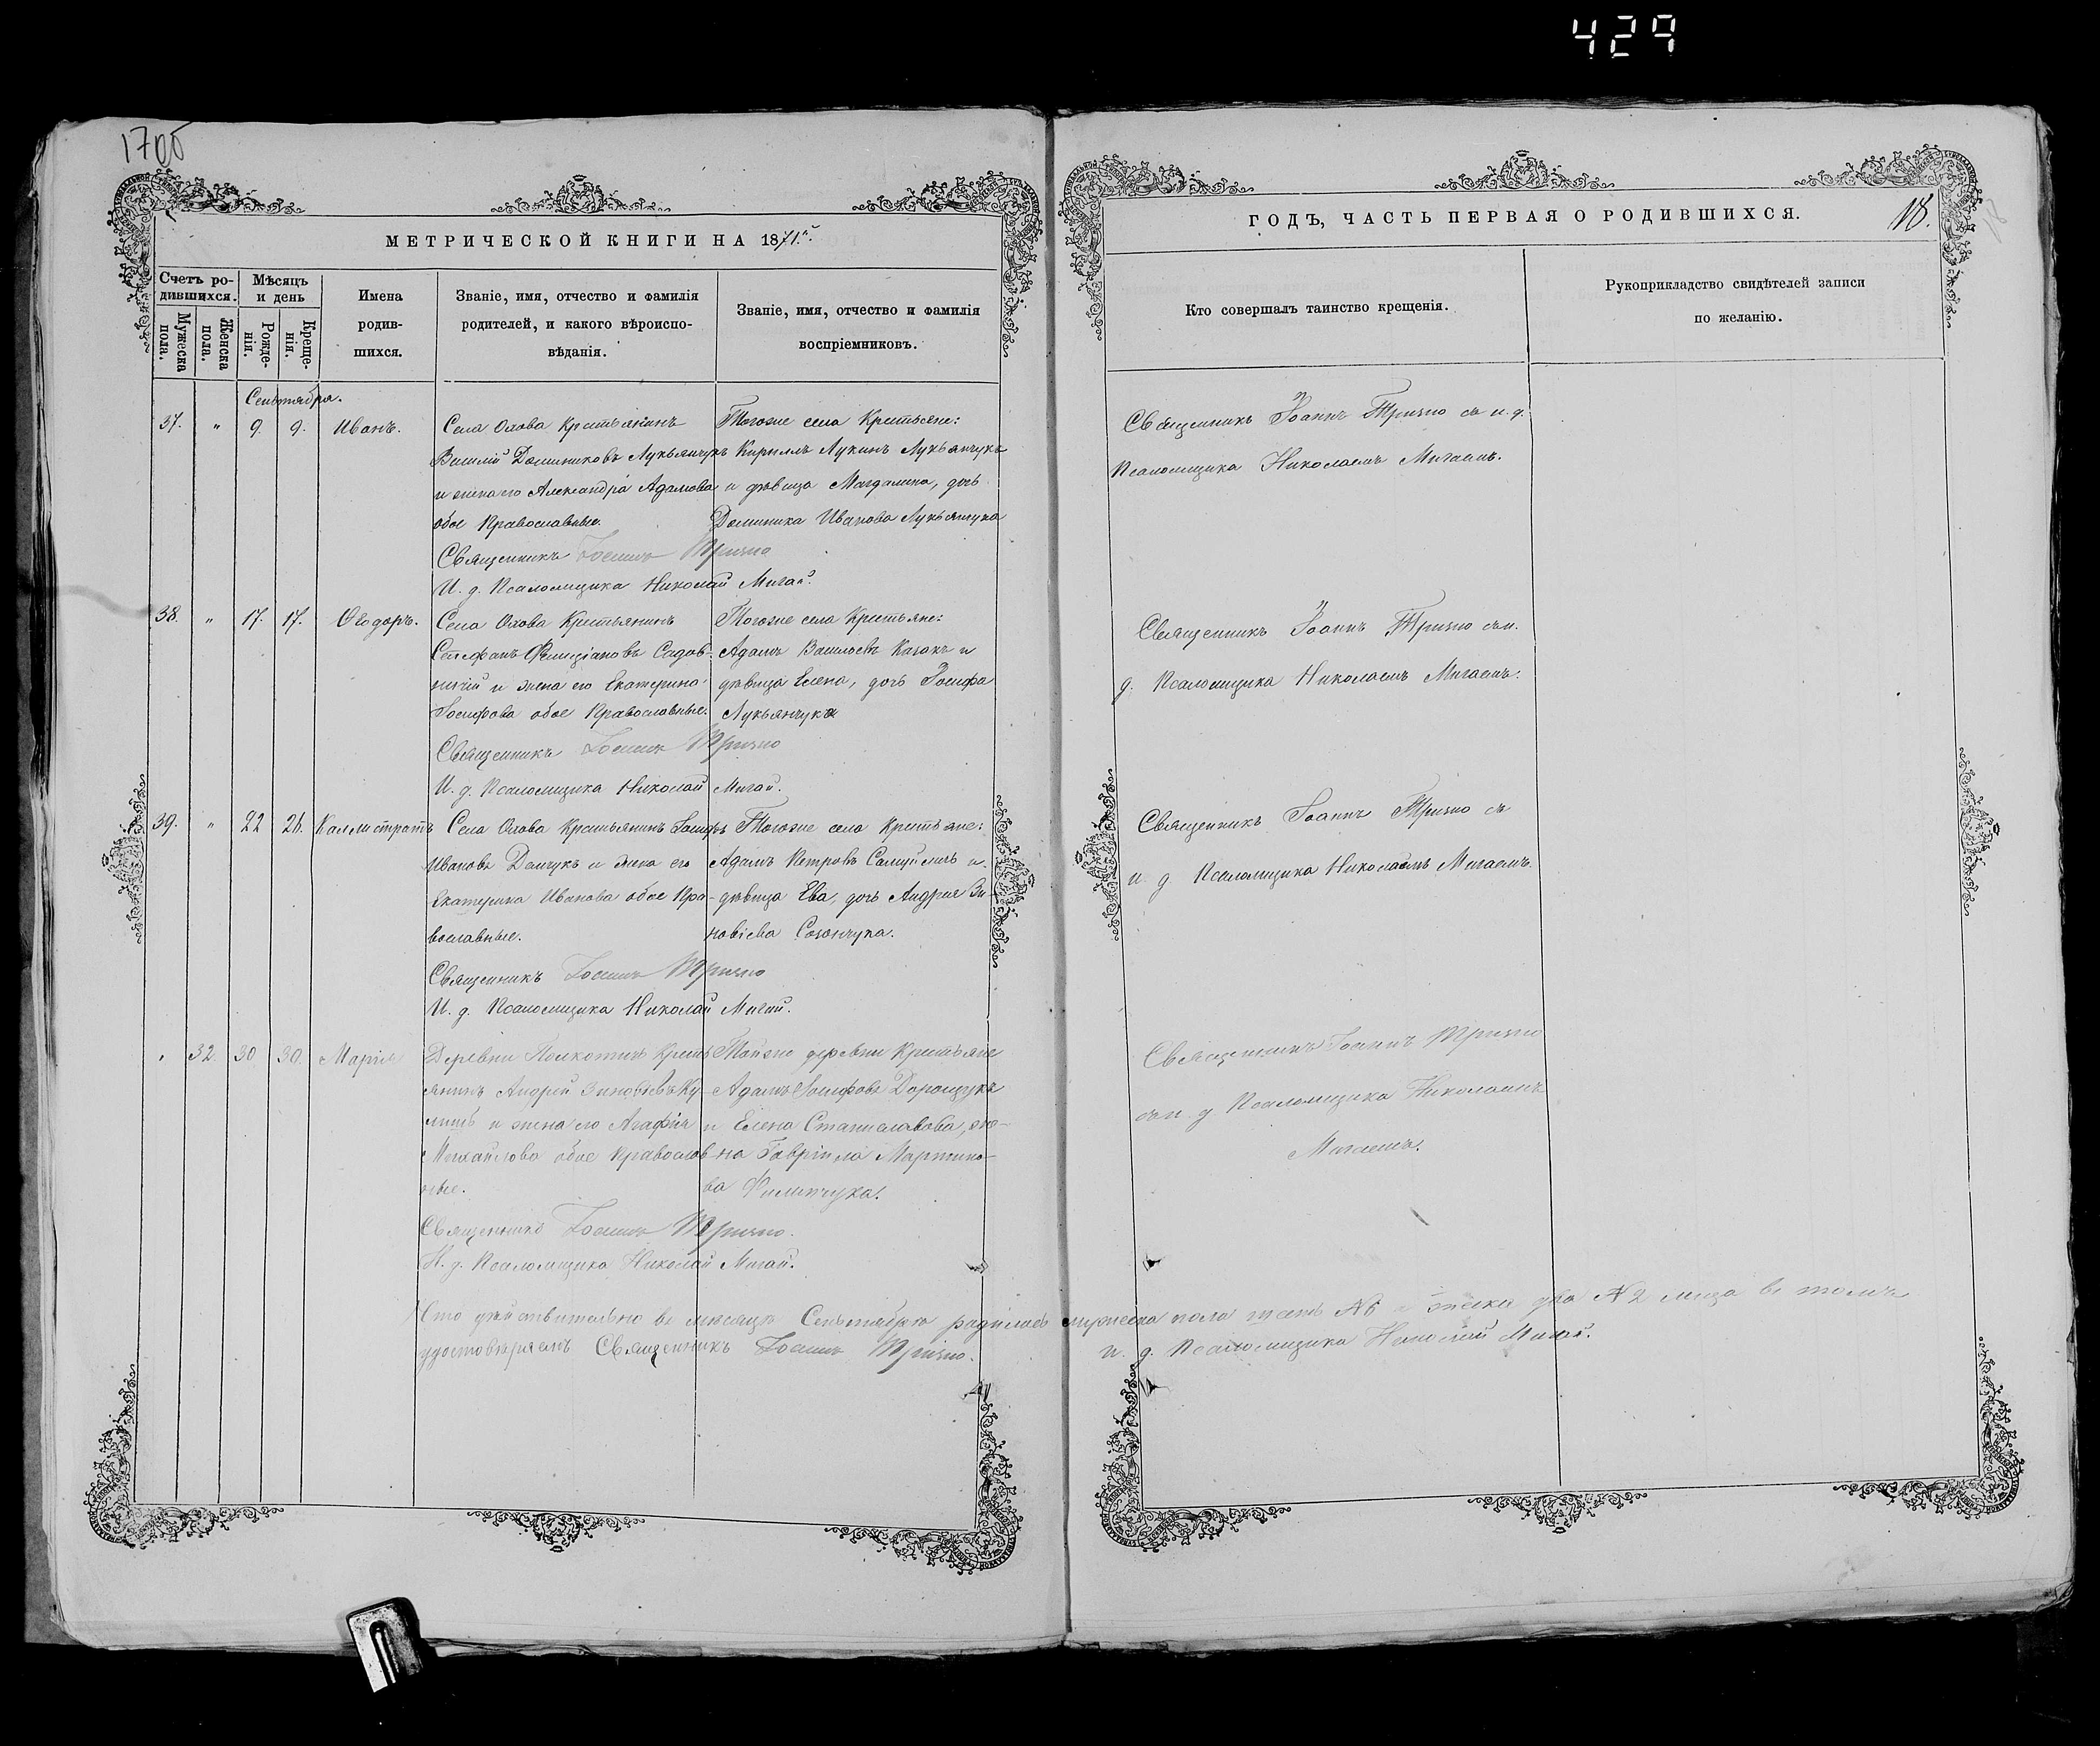 429
1700
МЕТРИЧЕСКОЙ КНИГИ НА 1871.й
Счетъ ро-
дившихся.
Мужеска
пола.
Женска
пола.
Мѣсяцъ
и день
Рожде-
нія.
Креще-
нія.
Имена
родив-
шихся.
Званіе, имя, отчество и фамилія
родителей, и какого вѣроиспо-
вѣданія.
Званіе, имя, отчество и фамилія
воспріемниковъ.
Сентября.
37. " 9. 9. Иванъ.
Села Олова Крестьянинъ
Василій Доминиковъ Лукьянчукъ
и жена его Александра Адамова
обое Православные.
Тогоже села Крестьяне:
Кириллъ Лукинъ Лукьянчукъ
и дѣвица Магдалина, дочь
Доминика Иванова Лукьянчука
Священникъ Іоаннъ
И. д. Псаломщика Николай Мигай.
38. " 17. 17. Ѳеодоръ.
Села Олова Крестьянинъ
Стефанъ Фелиціановъ Садов-
ничій и жена его Екатерина
Іосифова обое Православные.
Тогоже села Крестьяне:
Адамъ Васильевъ Казакъ и
дѣвица Елена, дочь Іосифа
Лукьянчука
Священникъ Іоаннъ
И. д. Псаломщика Николай Мигай.
39. " 22 26. Каллистратъ
Села Олова Крестьянинъ Іосифъ
Ивановъ Демчукъ и жена его
Екатерина Иванова обое Пра-
вославные.
Тогоже села Крестьяне:
Адамъ Петровъ и
дѣвица Ева, дочь Андрея Зи-
новіева Созончука.
Священникъ Іоаннъ
И. д. Псаломщика Николай Мигай.
" 32. 30 30. Марія
Деревни Крестъ
янинъ Андрей Зиновіевъ Ку-
и жена его Агафія
Михайлова обое Православ
ные.
Тойже деревни Крестьяне
Адамъ Іосифовъ Дорощукъ
и Елена Станиславова, же-
на Гавріила Мартино-
ва Филипчука.
Священникъ Іоаннъ
И. д. Псаломщика Николай Мигай.
Что дѣйствительно въ мѣсяцѣ Сентябрѣ родилось мужеска пола шесть №6 и женска два №2 лица въ томъ
удостовѣряемъ Священникъ Іоаннъ
и. д. Псаломщика Николай Мигай.
ГОДЪ, ЧАСТЬ ПЕРВАЯ О РОДИВШИХСЯ.
18.
Кто совершалъ таинство крещенія.
Рукоприкладство свидѣтелей записи
по желанію.
Священникъ Іоаннъ съ и. д.
Псаломщика Николаемъ Мигаемъ.
Священникъ Іоаннъ съ и.
д. Псаломщика Николаемъ Мигаемъ.
Священникъ Іоаннъ съ
и. д Псаломщика Николаемъ Мигаемъ.
Священникъ Іоаннъ
съ и. д Псаломщика Николаемъ
Мигаемъ.